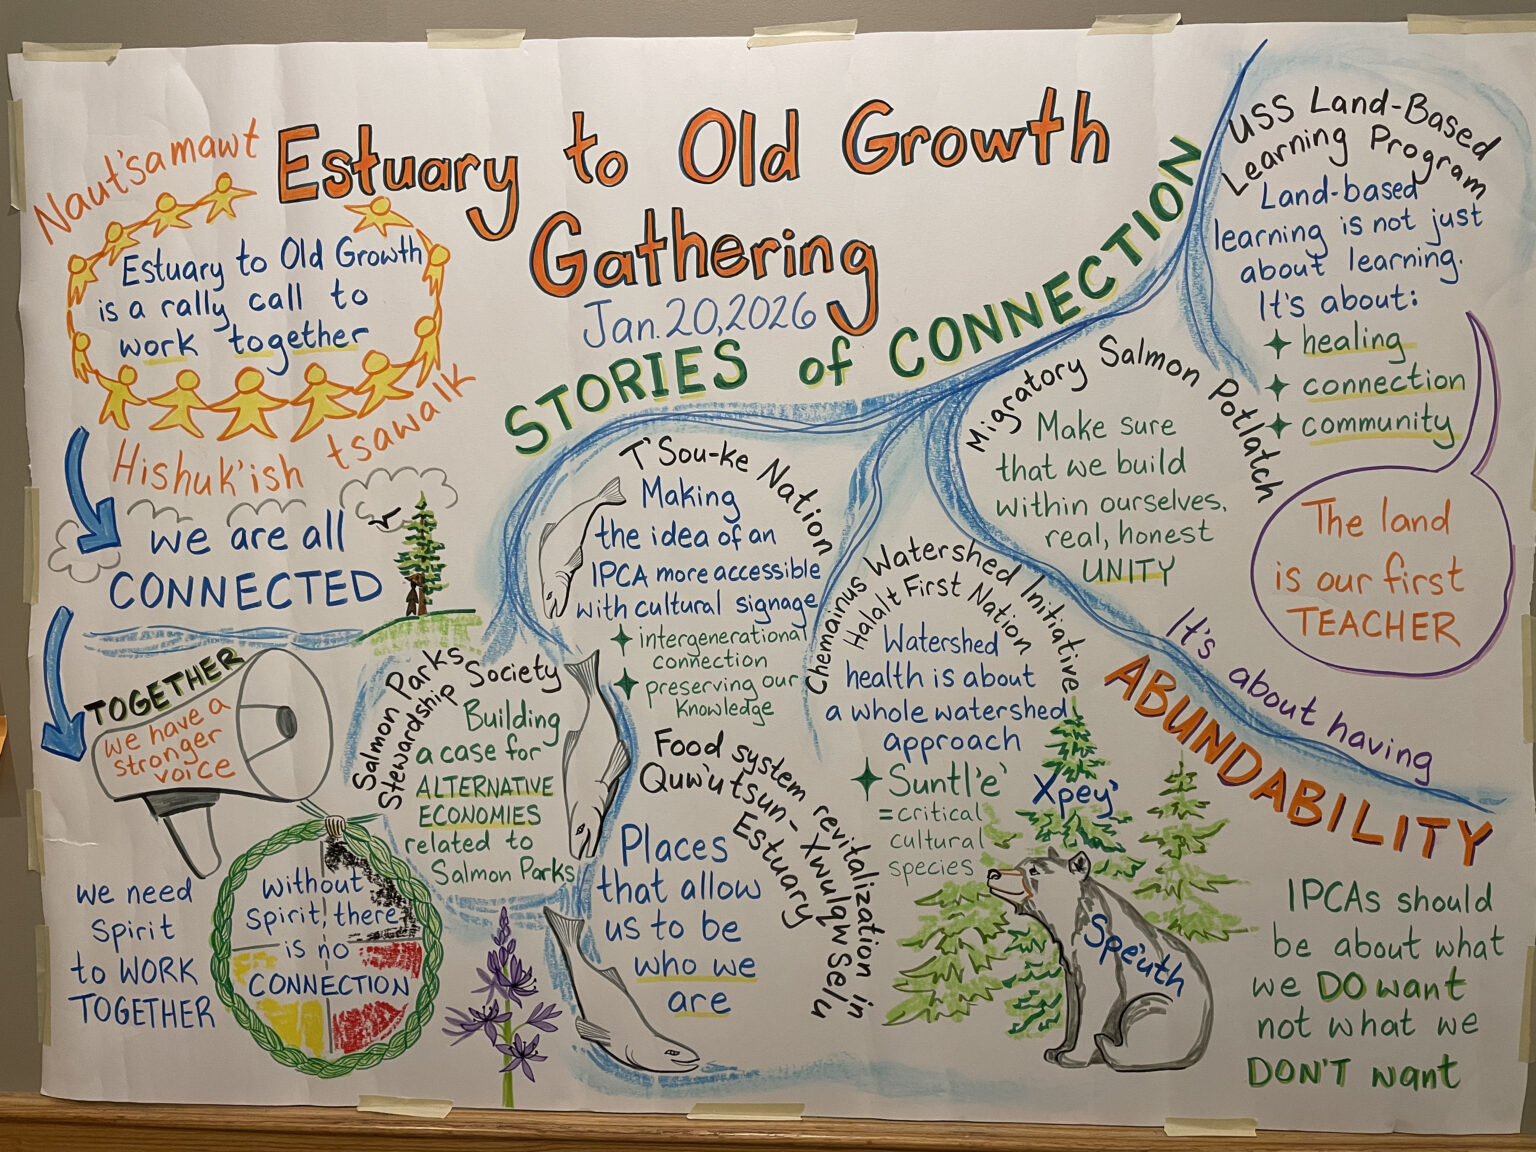 Estuary to Old Growth
Gathering
Jan. 20, 2026
Naut'samawt
Estuary to Old Growth
is a rally call to
work together
Hishuk'ish
tsawalk
we are all
CONNECTED
TOGETHER
we have a
stronger
voice
we need
Spirit
to WORK
TOGETHER
without
spirit, there
is no
CONNECTION
STORIES of CONNECTION
Salmon Parks
Stewardship Society
Building
a case for
ALTERNATIVE
ECONOMIES
related to
Salmon Parks
T'Sou-ke Nation
Making
the idea of an
IPCA more accessible
with cultural signage
intergenerational
connection
preserving our
Knowledge
Food system revitalization in
Quw'utsun - Xwulqw'selu
Estuary
Places
that allow
us to be
who we
are
Chemainus Watershed Initiative
Halalt First Nation
Watershed
health is about
a whole watershed
approach
Suntl'e'
= critical
cultural
species
Xpey'
Spe'uth
Migratory Salmon Potlatch
Make sure
that we build
within ourselves,
real, honest
UNITY
USS Land-Based
Learning Program
Land-based
learning is not just
about learning.
It's about:
healing
connection
community
The land
is our first
TEACHER
It's about having
ABUNDABILITY
IPCAs should
be about what
we DO want
not what we
DON'T want